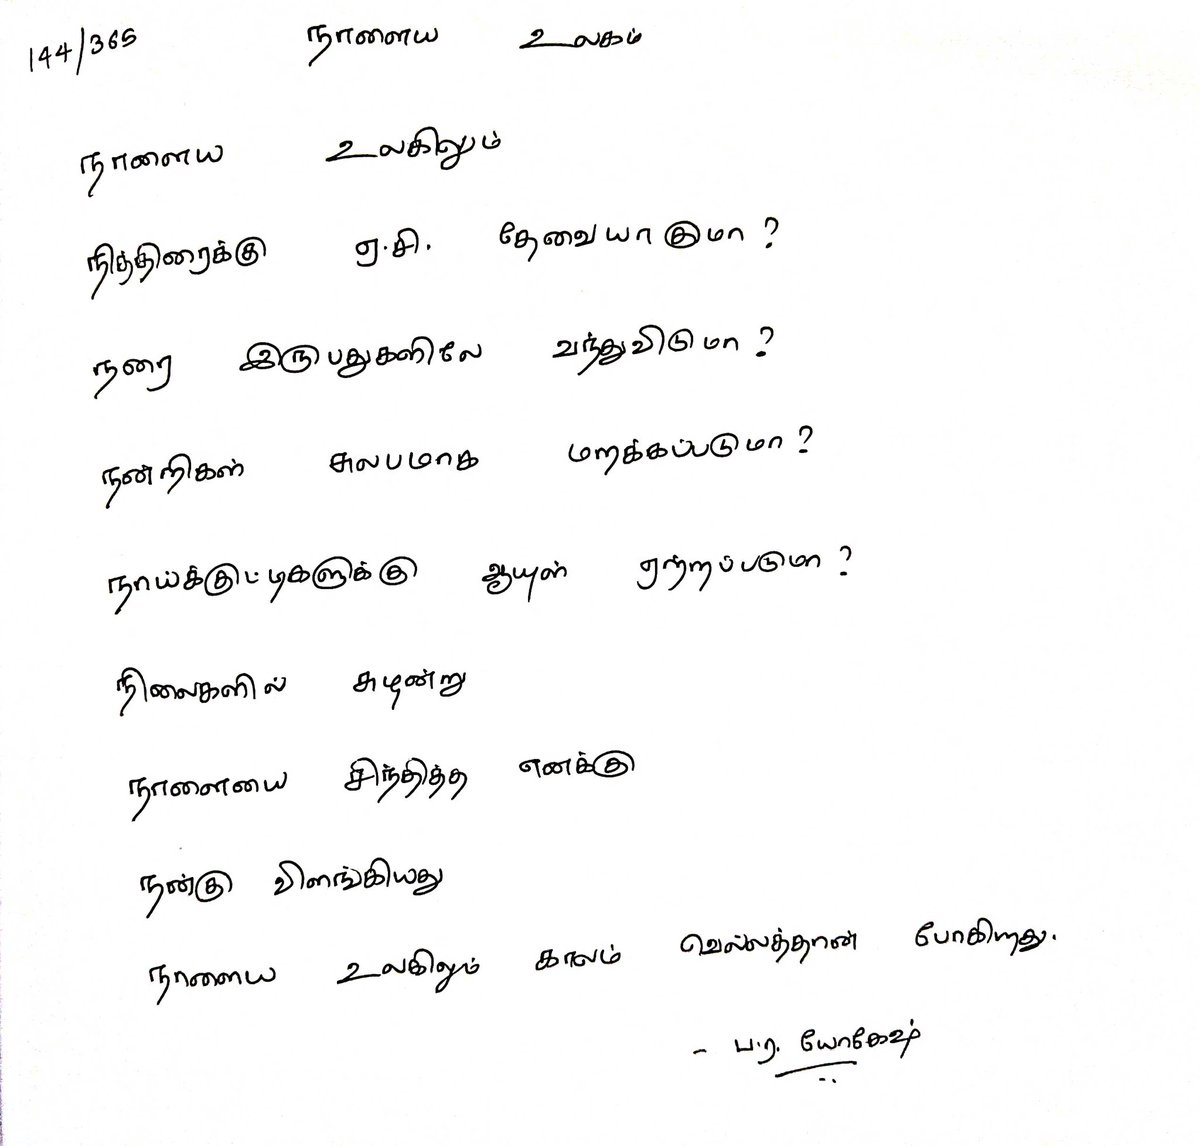 144/365
நாளைய உலகம்
நாளைய உலகிலும்
நித்திரைக்கு ஏ.சி. தேவையாகுமா?
நரை இருபதுகளிலே வந்துவிடுமா?
நன்றிகள் சுலபமாக மறக்கப்படுமா?
நாய்க்குட்டிகளுக்கு ஆயுள் ஏற்றப்படுமா?
நிலைகளில் சுழன்று
நாளையை சிந்தித்த எனக்கு
நன்கு விளங்கியது
நாளைய உலகிலும் காலம் வெல்லத்தான் போகிறது.
- ப.ர. யோகேஷ்